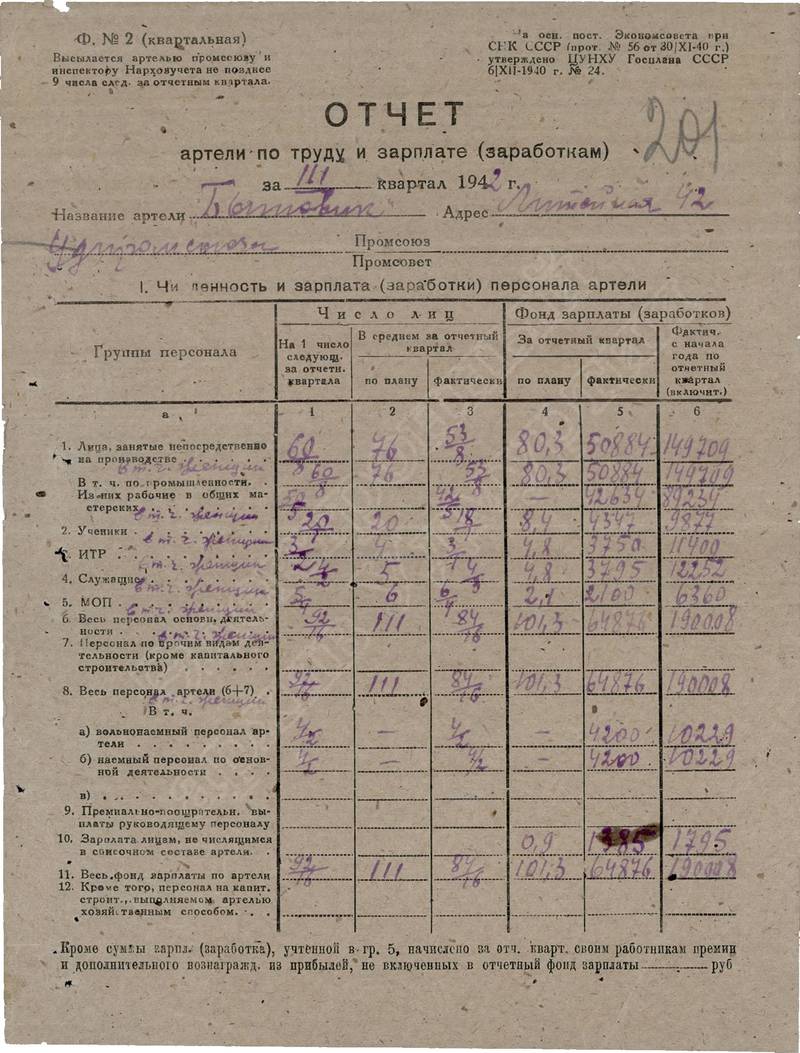 Ф. № 2 (квартальная)
Высылается артелью промсоюзу и
инспектору Нархозучета не позднее
9 числа след. за отчетным квартала.
На осн. пост. Экономсовета при
СНК СССР (прот. № 56 от 30/XI-40 г.)
утверждено ЦУНХУ Госплана СССР
6/XII-1940 г. № 24.
ОТЧЕТ
201
артели по труду и зарплате (заработкам)
за III квартал 1942 г.
Название артели "Бытовик" Адрес Литейная 42
Удпромсоюза Промсоюз
Промсовет
I. Чи ленность и зарплата (заработки) персонала артели
Группы персонала
Число лиц
Фонд зарплаты (заработков)
На 1 число
следующ.
за отчетн.
квартала
В среднем за отчетный
квартал
по плану фактически
За отчетный квартал
по плану фактически
Фактич.
с начала
года по
отчетный
квартал
(включит.)
а 1 2 3 4 5 6
1. Лица, занятые непосредственно
на производстве 60/8 76 53/8 80,3 50884 149709
в т. ч. женщин
В т. ч. по промышленности 60/8 76 53/8 80,3 50884 149709
Из них рабочие в общих ма-
стерских — 42634 89234
в т. ч. женщин
2. Ученики 20 20 18 8,4 4347 9877
в т. ч. женщин
3. ИТР 4 3 4,8 3750 11400
в т. ч. женщин
4. Служащие 5 4 4,8 3795 12252
в т. ч. женщин
5. МОП 5/4 6 6/4 2,1 2100 6360
в т. ч. женщин
6. Весь персонал основн. деятель-
ности 92/16 111 84/16 101,3 64876 190008
в т. ч. женщин
7. Персонал по прочим видам дея-
тельности (кроме капитального
строительства)
8. Весь персонал артели (6+7) 92/16 111 84/16 101,3 64876 190008
в т. ч. женщин
В т. ч.
а) вольнонаемный персонал ар-
тели 4/2 — 4/2 — 4200 10229
б) наемный персонал по основ-
ной деятельности 4/2 — 4/2 — 4200 10229
в)
9. Премиально-поощрительн. вы-
платы руководящему персоналу
10. Зарплата лицам, не числящимся
в списочном составе артели 0,9 1795
11. Весь фонд зарплаты по артели 92/16 111 84/16 101,3 64876 190008
12. Кроме того, персонал на капит.
строит., выполняемом артелью
хозяйственным способом
Кроме суммы зарпл. (заработка), учтенной в гр. 5, начислено за отч. кварт. своим работникам премии
и дополнительного вознагражд. из прибылей, не включенных в отчетный фонд зарплаты руб